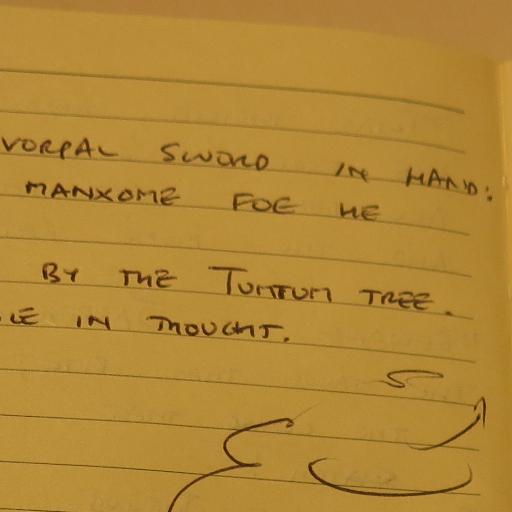 VORPAL SWORD IN HAND:
MANXOME FOE HE
BY THE TUMTUM TREE.
IN THOUGHT.